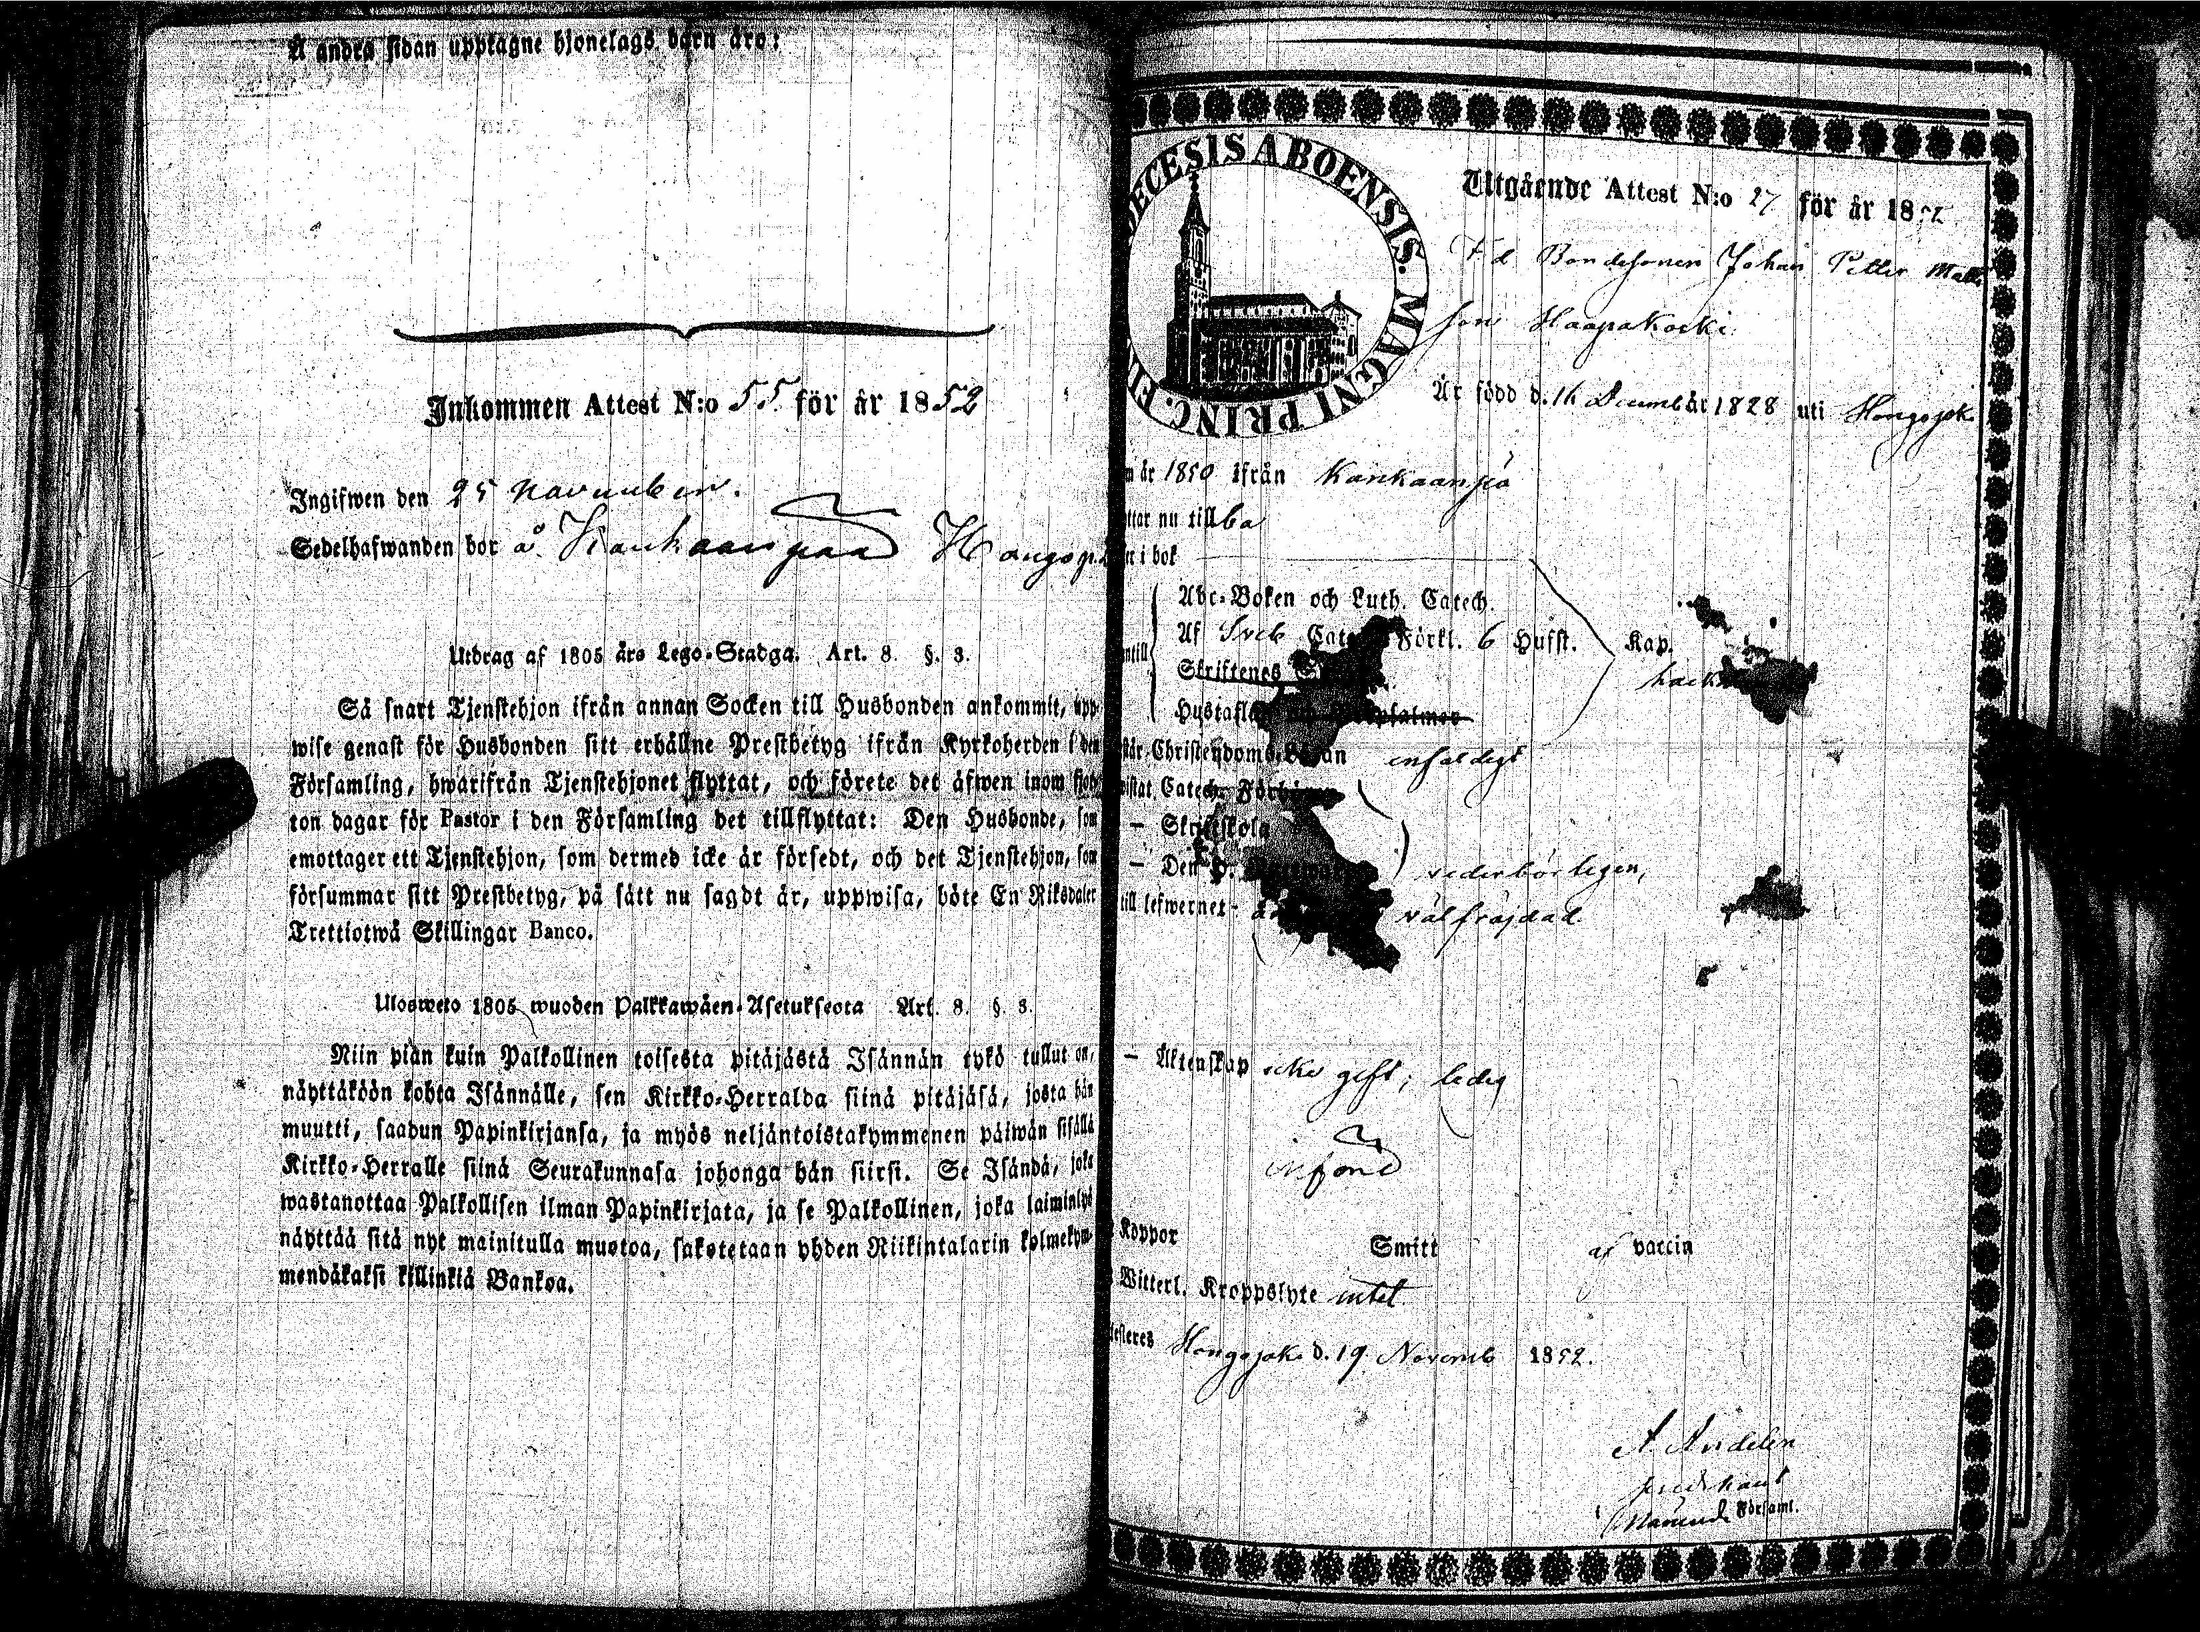 Å andra sidan upptagne hjonelags barn äro:
Inkommen Attest N:o 55 för år 1852
Ingifwen den 25 november.
Sedelhafwanden bor å Kankaanpää
Utdrag af 1805 års Lego-Stadga. Art. 8. §. 3.
Så snart Tjenstehjon ifrån annan Socken till Husbonden ankommit, upp-
wise genast för Husbonden sitt erhållne Prestbetyg ifrån Kyrkoherden i den
Församling, hwarifrån Tjenstehjonet flyttat, och förete det äfwen inom fjor-
ton dagar för Pastor i den Församling det tillflyttat: Den Husbonde, som
emottager ett Tjenstehjon, som dermed icke är försedt, och det Tjenstehjon, som
försummar sitt Prestbetyg, på sätt nu sagdt är, uppwisa, böte En Riksdaler
Trettiotwå Skillingar Banco.
Ulosweto 1805 wuoden Palkkawäen-Asetuksesta Art. 8. §. 3.
Niin pian kuin Palkollinen toisesta pitäjästä Isännän tykö tullut on,
näyttäköön kohta Isännälle, sen Kirkko-Herralda siinä pitäjäsä, josta hän
muutti, saadun Papinkirjansa, ja myös neljäntoistakymmenen päiwän sisällä
Kirkko-Herralle siinä Seurakunnasa johonga hän siirsi. Se Isändä, joka
wastanottaa Palkollisen ilman Papinkirjata, ja se Palkollinen, joka laiminlyö
näyttää sitä nyt mainitulla muotoa, sakotetaan yhden Riikintalarin kolmekym-
mendäkaksi killinkiä Bankoa.
DECESIS ABOENSIS. MAGNI PRINC. FI
Utgående Attest N:o 27 för år 1852
Fd Bondesonen Johan Petter Matts
son Haapakoski
Är född d. 16 Decemb år 1828 uti Hongojoki
år 1850 ifrån Kankaanpä
nu tillba
i bok
Abc-Boken och Luth. Catech.
Af Sveb Cate Förkl. 6 Hufst. Kap.
Skriftenes
Hustafl psalmer
Christendoms Läran enfaldigt
Catech. Förhör
— Skriftskola
— Den H. Nattward vederbörligen,
till lefwernet välfräjdad
— Äktenskap icke gift; ledig
Koppor Smitt af vaccin
Witterl. Kroppslyte intet
Hongojoki d. 19 Novemb 1852.
A. Andelin
predikant
Församl.